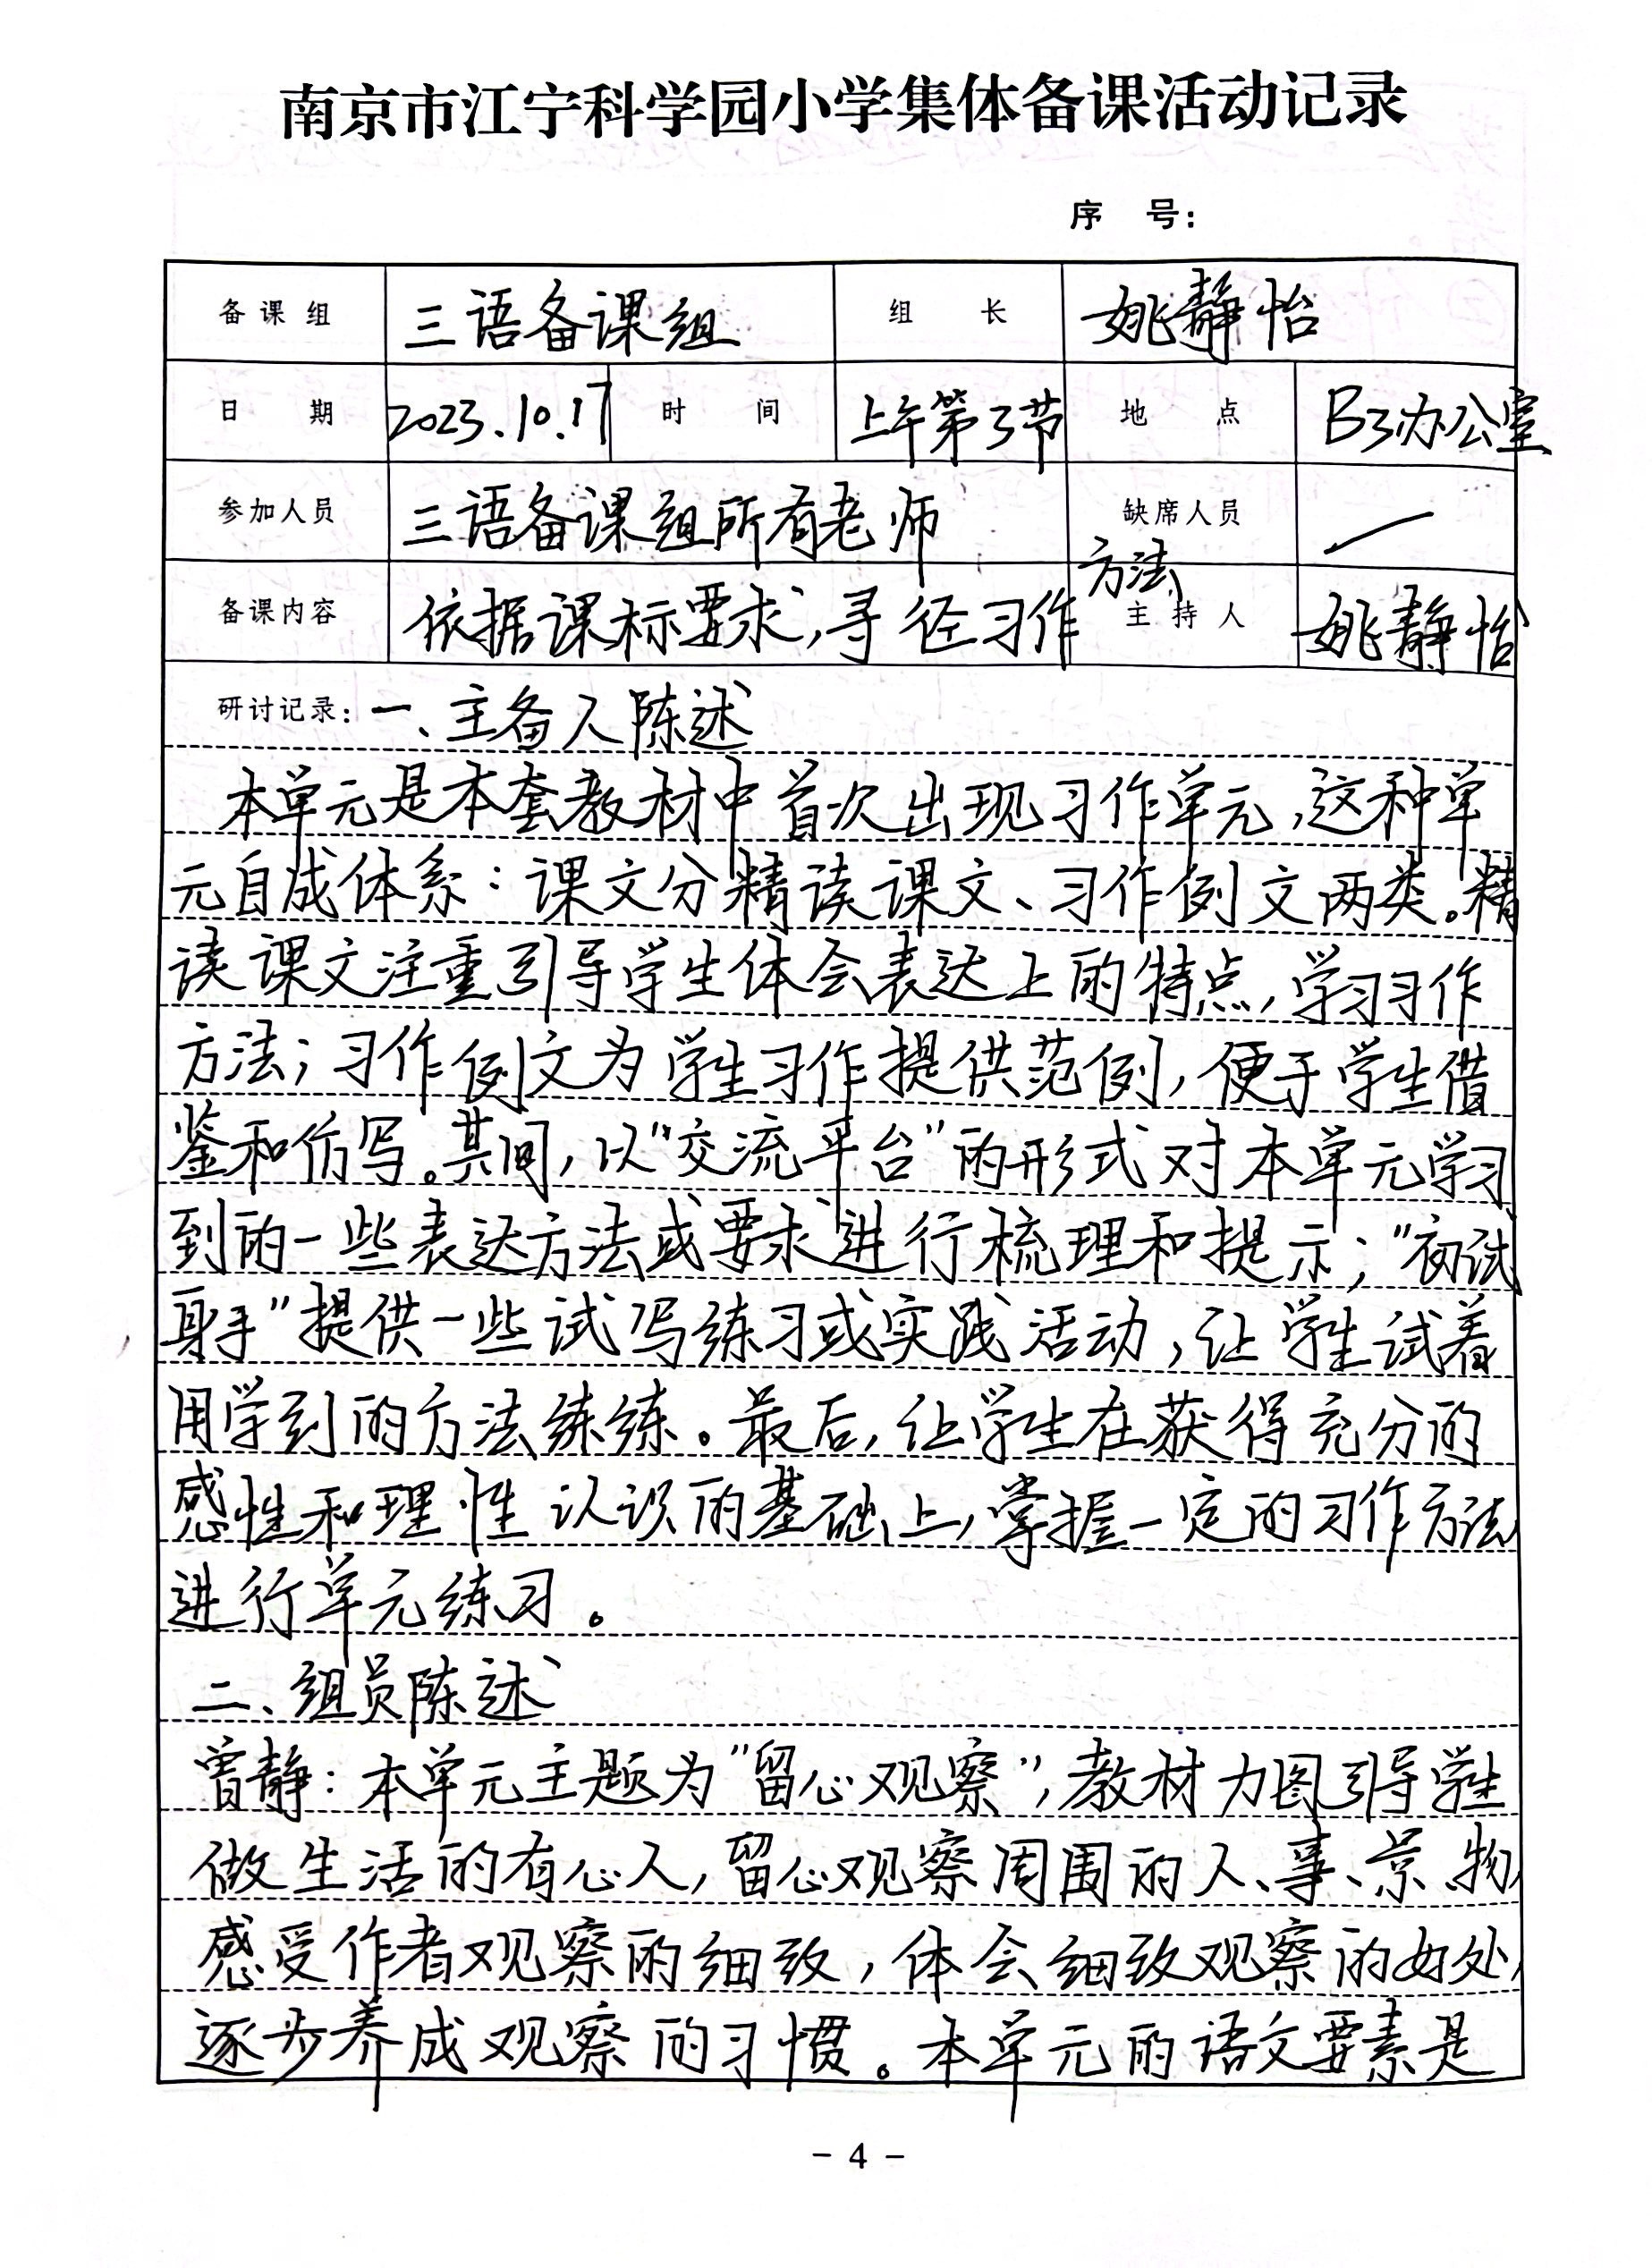 南京市江宁科学园小学集体备课活动记录
序 号：
备课组 三语备课组 组 长 姚静怡
日 期 2023.10.17 时 间 上午第3节 地 点 B3办公室
参加人员 三语备课组所有老师 缺席人员 —
备课内容 依据课标要求,寻径习作方法 主持人 姚静怡
研讨记录：一、主备人陈述
本单元是本套教材中首次出现习作单元,这种单
元自成体系：课文分精读课文、习作例文两类。精
读课文注重引导学生体会表达上的特点,学习习作
方法；习作例文为学生习作提供范例,便于学生借
鉴和仿写。其间,以“交流平台”的形式对本单元学习
到的一些表达方法或要求进行梳理和提示；“初试
身手”提供一些试写练习或实践活动,让学生试着
用学到的方法练练。最后,让学生在获得充分的
感性和理性认识的基础上,掌握一定的习作方法
进行单元练习。
二、组员陈述
曾静：本单元主题为“留心观察”,教材力图引导学生
做生活的有心人,留心观察周围的人、事、景、物,
感受作者观察的细致,体会细致观察的好处,
逐步养成观察的习惯。本单元的语文要素是
- 4 -